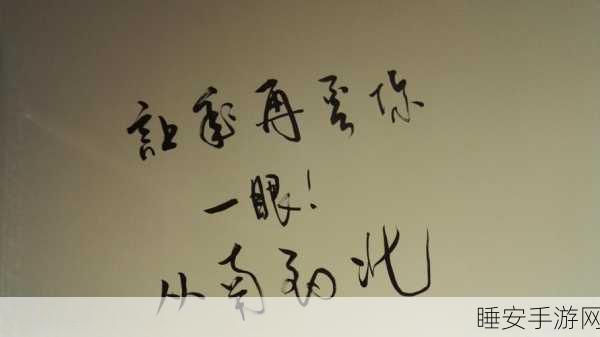 让我再看你
一眼!
从南到北
睡安手游网